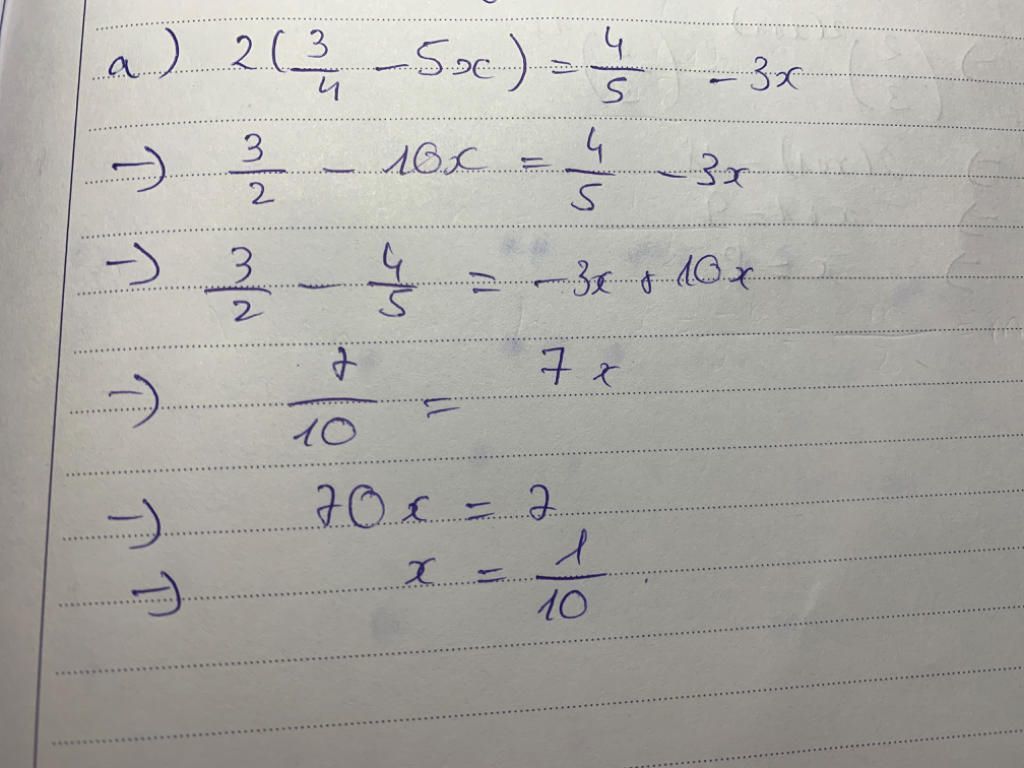 a) 2(3/4 - 5x) = 4/5 - 3x
→) 3/2 - 10x = 4/5 - 3x
→) 3/2 - 4/5 = -3x + 10x
→) 7/10 = 7x
→) 70x = 7
→) x = 1/10